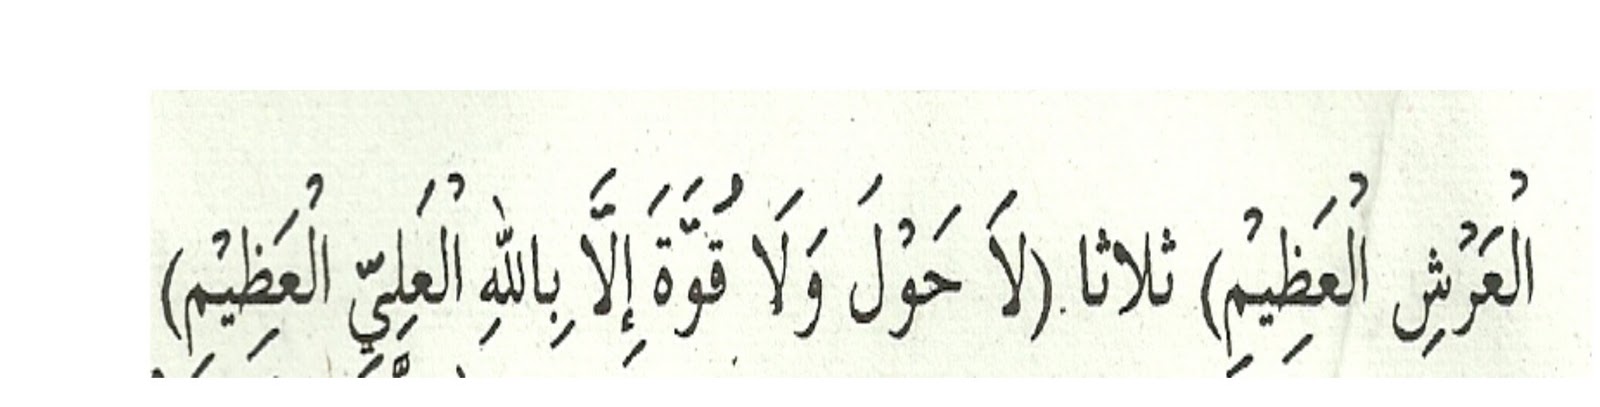 الْعَرْشِ الْعَظِيْمِ) ثلاثا (لَا حَوْلَ وَلَا قُوَّةَ إِلَّا بِاللهِ الْعَلِيِّ الْعَظِيْمِ)